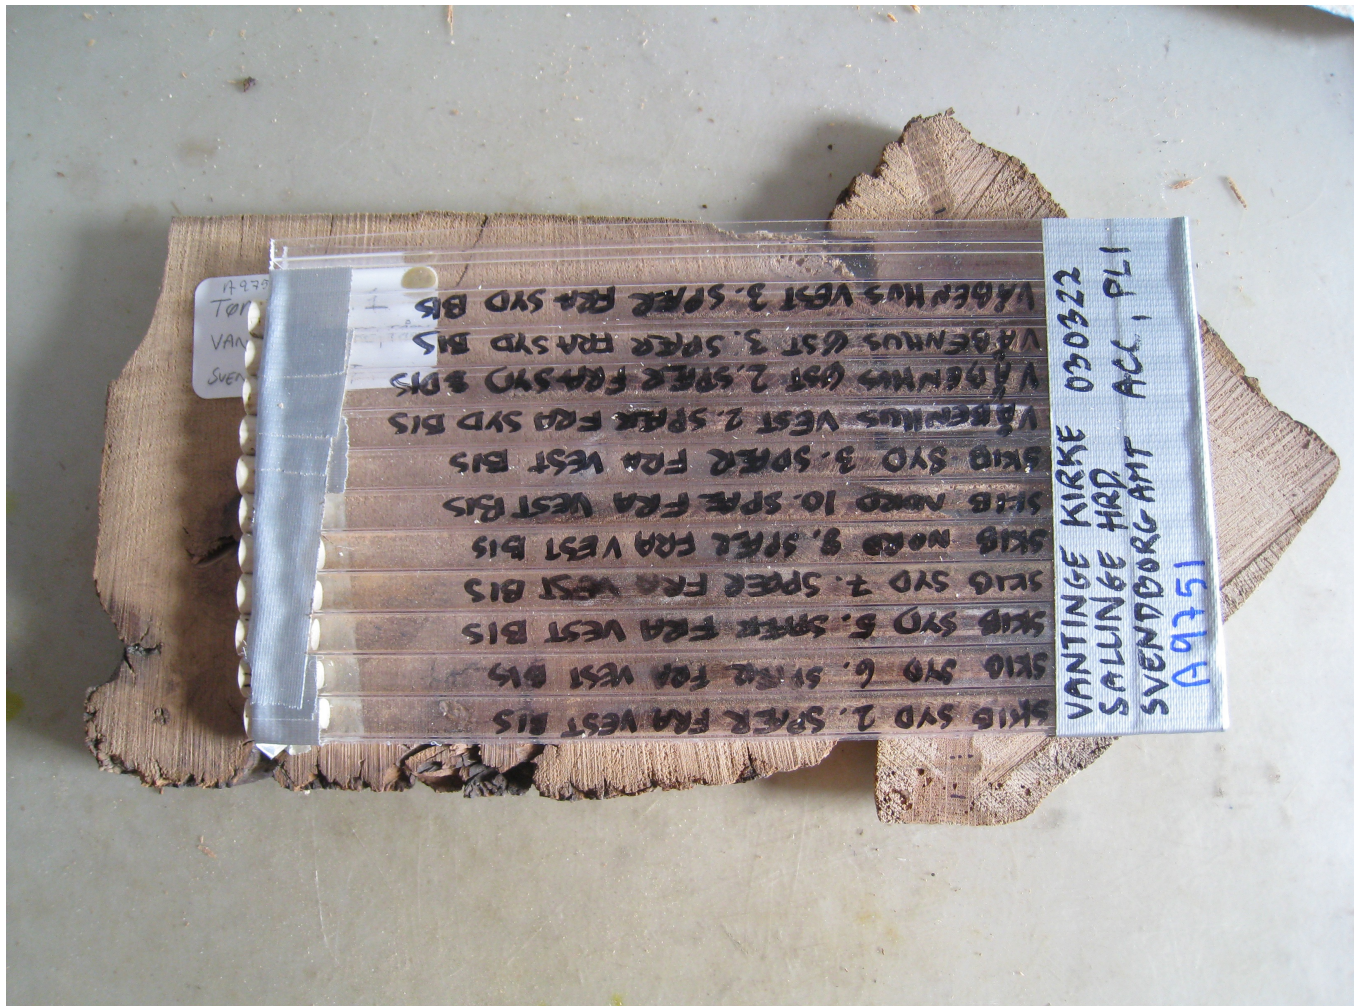 VANTINGE KIRKE 030322
SALLINGE HRD.
SVENDBORG AMT ACC, PL1
A9751
SKIB SYD 2. SPÆR FRA VEST BIS
SKIB SYD 6. SPÆR FRA VEST BIS
SKIB SYD 5. SPÆR FRA VEST BIS
SKIB SYD 7. SPÆR FRA VEST BIS
SKIB NORD 9. SPÆR FRA VEST BIS
SKIB NORD 10. SPÆR FRA VEST BIS
SKIB SYD 3. SPÆR FRA VEST BIS
VÅBENHUS VEST 2. SPÆR FRA SYD BIS
VÅBENHUS ØST 2. SPÆR FRA SYD BIS
VÅBENHUS ØST 3. SPÆR FRA SYD BIS
VÅBENHUS VEST 3. SPÆR FRA SYD BIS
A975
VAN
SVEN